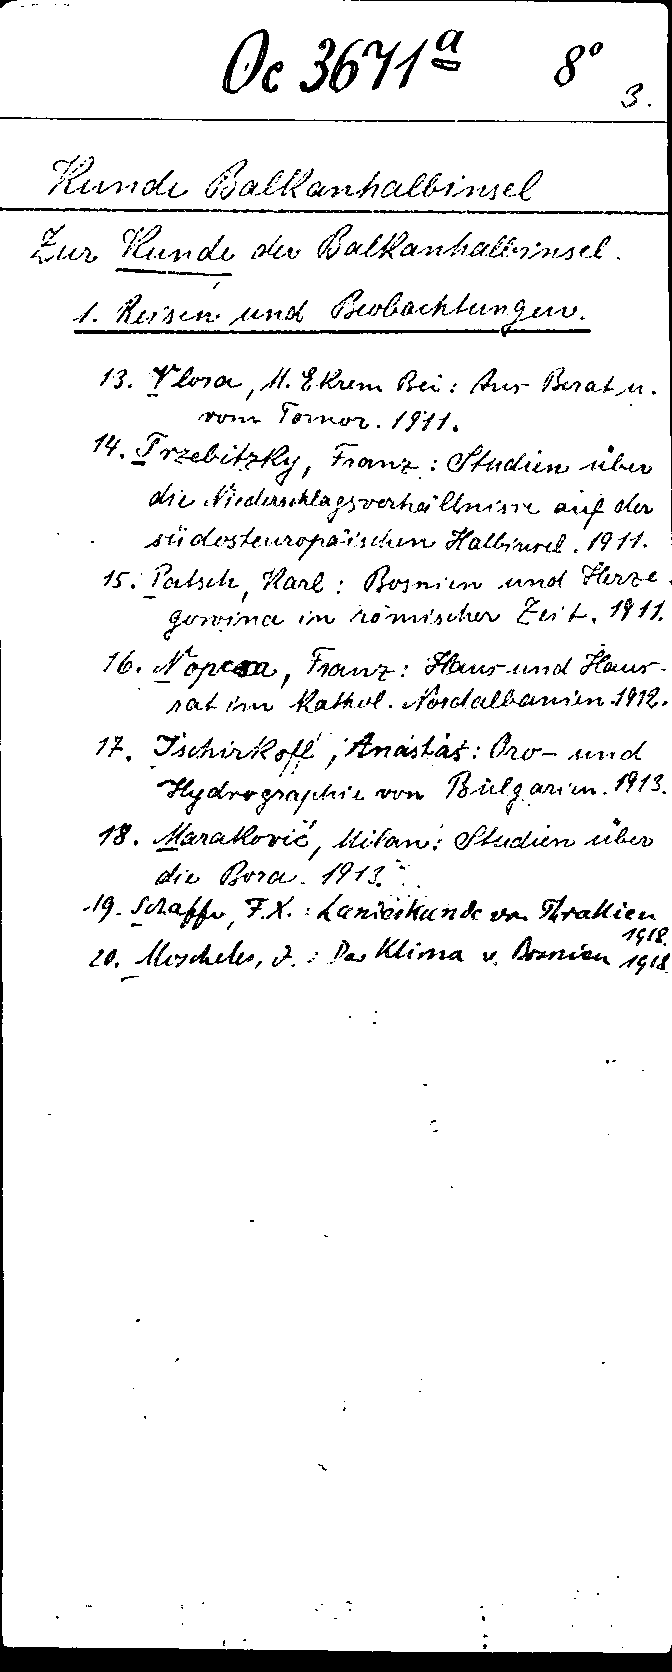 Oc 3671ª 8°
3.
Kunde Balkanhalbinsel
Zur Kunde der Balkanhalbinsel.
1. Reisen und Beobachtungen.
13. Vlora, M. Ekrem Bei: Aus Berat u.
vom Tomor. 1911.
14. Trzebitzky, Franz: Studien über
die Niederschlagsverhältnisse auf der
südosteuropäischen Halbinsel. 1911.
15. Patsch, Karl: Bosnien und Herze
gowina in römischer Zeit. 1911.
16. Nopcsa, Franz: Haus und Haus-
rat im Kathol. Nordalbanien. 1912.
17. Ischirkoff, Anastas: Oro- und
Hydrographie von Bulgarien. 1913.
18. Maraković, Milan: Studien über
die Bora. 1913.
19. Schaffer, F.X.: Landeskunde von Thrakien
1918.
20. Moscheles, J.: Das Klima v. Bosnien 1918